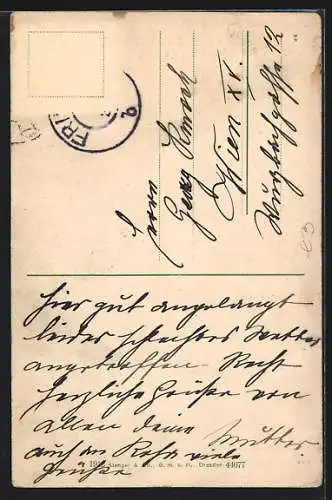 FRI
Herrn
Georg Kmoch
Wien XV.
Wurzbachgasse 12
hier gut angelangt
leider schlechtes Wetter
angetroffen. Recht
herzliche Grüße von
allen deine Mutter
auch an Resa viele
Grüße
Stengel & Co., G. m. b. H., Dresden 44077